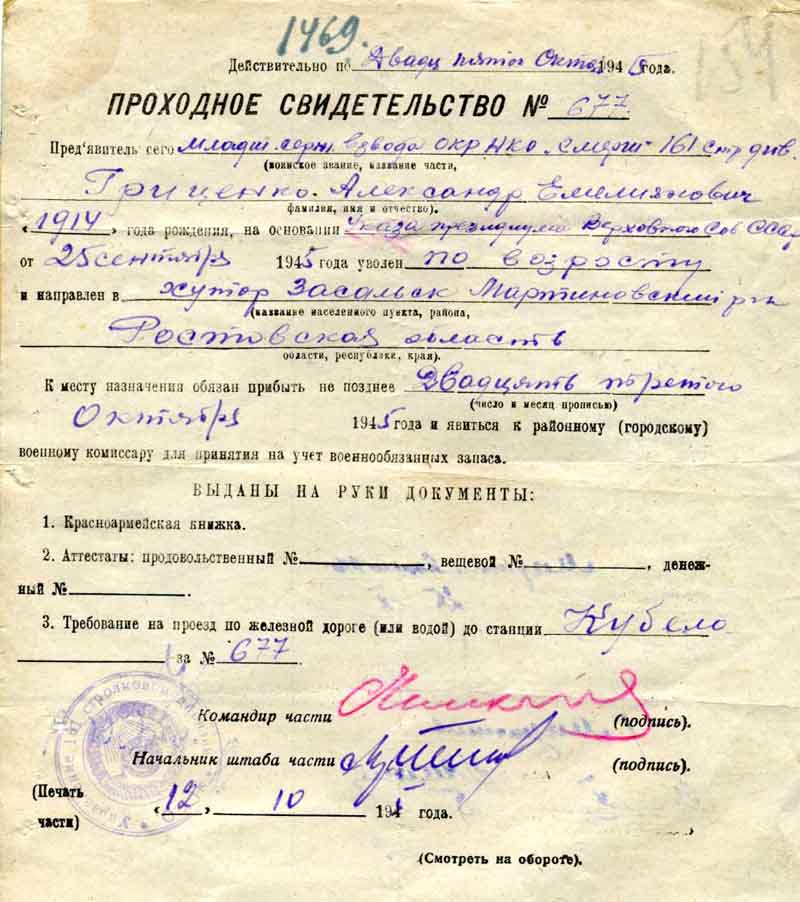 1469.
Действительно по Двадц пятое Октяб 1945 года.
ПРОХОДНОЕ СВИДЕТЕЛЬСТВО № 677
Пред'явитель сего Младш. серж. взвода ОКР НКО „Смерш" 161 стр. див.
(воинское звание, название части,
Гриценко Александр Емелиянович
фамилия, имя и отчество).
«1914» года рождения, на основании Указа президиума Верховного Сов СССР
от 25 сентября 1945 года уволен по возросту
и направлен в хутор Засальск Мартиновский р-н
(название населенного пункта, района,
Ростовская область
области, республики, края).
К месту назначения обязан прибыть не позднее Двадцять третого
(число и месяц прописью)
Октября 1945 года и явиться к районному (городскому)
военному комиссару для принятия на учет военнообязанных запаса.
ВЫДАНЫ НА РУКИ ДОКУМЕНТЫ:
1. Красноармейская книжка.
2. Аттестаты: продовольственный № , вещевой № , денеж-
ный № .
3. Требование на проезд по железной дороге (или водой) до станции Кубело
за № 677.
Командир части (подпись).
Начальник штаба части (подпись).
(Печать
части)
«12» 10 1945 года.
(Смотреть на обороте).